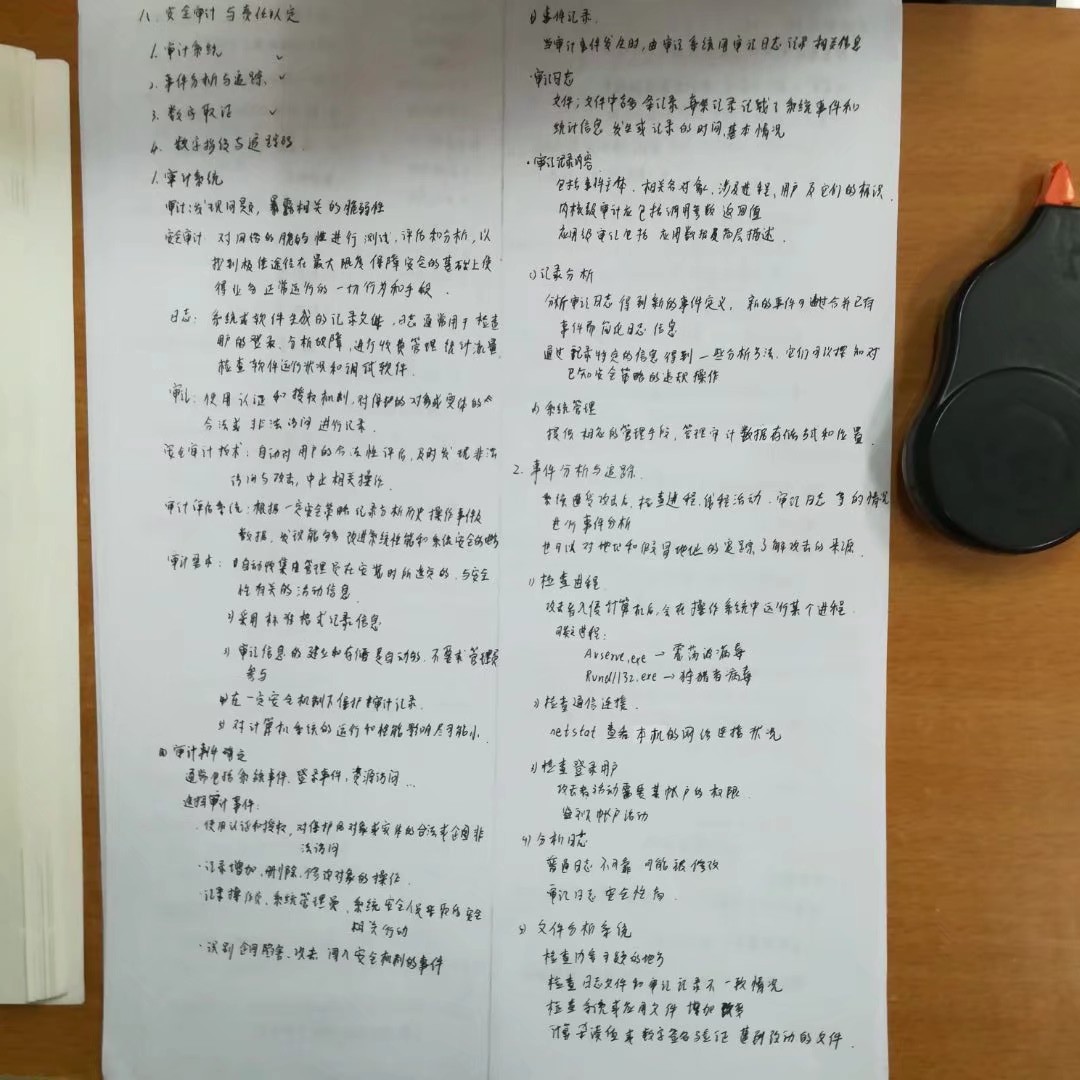 八、安全审计与责任认定
1. 审计系统
2. 事件分析与追踪
3. 数字取证
4. 数字指纹与追踪码
1. 审计系统
审计:发现问题,暴露相关的脆弱性
安全审计: 对网络的脆弱性进行测试,评估和分析,以
控制极佳途径在最大限度保障安全的基础上使
得业务正常运行的一切行为和手段.
日志: 系统或软件生成的记录文件,日志通常用于检查
用户的登录、分析故障,进行收费管理 统计流量,
检查软件运行状况和调试软件.
审记:使用认证和授权机制,对保护的对象或实体的
合法或非法访问进行记录.
安全审计技术:自动对用户的合法性评估,及时发现非法
访问与攻击,中止相关操作.
审计评估系统:根据一定安全策略记录与分析历史操作事件及
数据,发议能够改进系统性能和系统安全的
审计基本: 自动收集由管理员在安装时所选定的、与安全
性有关的活动信息
2)采用标准格式记录信息
3) 审记信息的建立和存储是自动的,不要求管理员
参与
4)在一定安全机制下保护审计记录.
5) 对计算机系统的运行和性能影响尽可能小.
审计事件确定
通常包括系统事件、登录事件,资源访问...
选择审计事件:
·使用认证和授权,对保护的对象或实体的合法或企图非
法访问
·记录增加、删除、修改对象的操作.
·记录操作员、系统管理员、系统安全人员 安全
相关行动
·识别企图 、攻击 闯入安全机制的事件
b)事件记录.
当审计事件发生时,由审记系统用审记日志记录相关信息
·审记日志
文件;文件中含多条记录 每条记录记载了系统事件和
统计信息 发生或记录的时间,基本情况
·审记记录内容
包括事件主体、相关客对象、涉及进程、用户及它们的标识
内核级审计应包括调用参数 返回值
应用级审记包括 应用数据及高层描述.
c)记录分析
分析审记日志得到新的事件定义, 新的事件可通过合并已存
事件而简化日志信息
通过记录特定的信息得到一些分析方法,它们可以探知对
已知安全策略的违规操作
d)系统管理
提供相应的管理手段,管理审计数据存储方式和位置.
2. 事件分析与追踪.
系统遭受攻击后,检查进程、线程活动、审记日志等的情况
进行事件分析
也可以对地址和假冒地址的追踪,了解攻击的来源.
1)检查进程.
攻击者入侵计算机后,会在操作系统中运行某个进程.
可疑进程:
Avserve.exe → 震荡波病毒
Rundll32.exe → 狩猎者病毒
2)检查通信连接.
netstat 查看本机的网络连接状况
3)检查登录用户
攻击者活动需要某帐户的权限.
监视帐户活动
4)分析日志
普通日志 不可靠 可能被修改
审记日志 安全性高.
5) 文件分析系统
检查 的地方
检查日志文件和审记记录不一致情况
检查系统或应用文件 增加
计算杂凑值或数字签名验证 鉴别改动的文件.